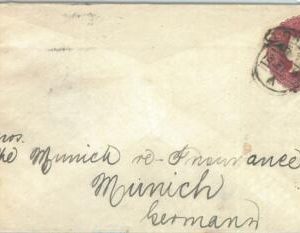 ros.
he Munich re-Insurance
Munich
Germany